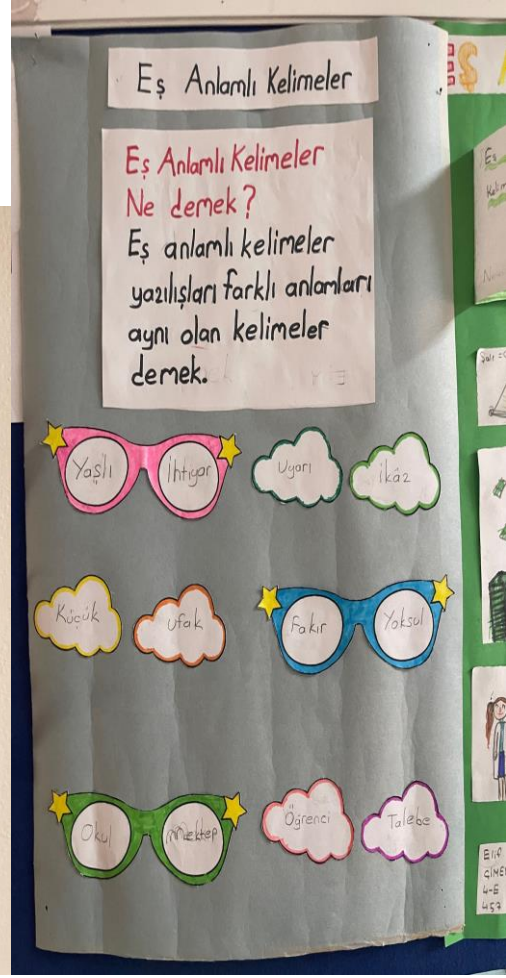 Eş Anlamlı Kelimeler
Eş Anlamlı Kelimeler
Ne demek?
Eş anlamlı kelimeler
yazılışları farklı anlamları
aynı olan kelimeler
demek.
Yaşlı İhtiyar
Uyarı İkâz
Küçük Ufak
Fakir Yoksul
Okul Mektep
Öğrenci Talebe
Eş
Elif
4-E
457